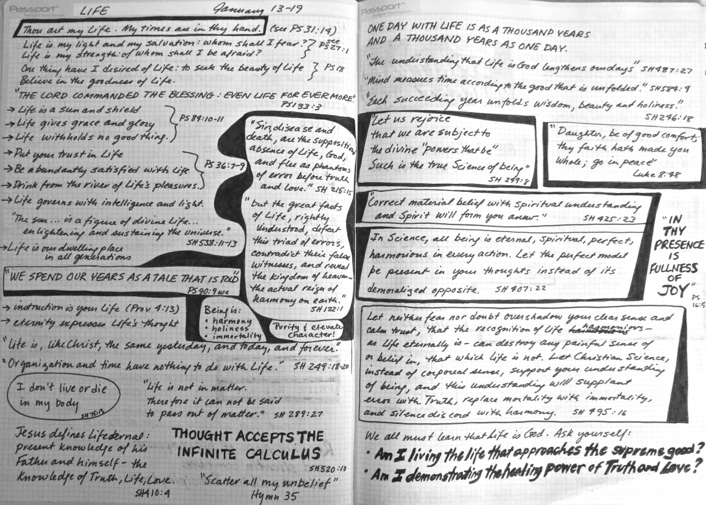 Passport
LIFE January 13-19
Thou art my Life. My times are in thy hand. (see PS 31:14)
Life is my light and my salvation: whom shall I fear?
Life is my strength: of whom shall I be afraid?
see PS 27:1
One thing have I desired of Life: to seek the beauty of Life
Believe in the goodness of Life.
"THE LORD COMMANDED THE BLESSING: EVEN LIFE FOR EVERMORE"
PS 133:3
→ Life is a sun and shield
→ Life gives grace and glory
→ Life withholds no good thing.
PS 84:10-11
→ Put your trust in Life
→ Be abundantly satisfied with Life
→ Drink from the river of Life's pleasures
PS 36:7-9
→ Life governs with intelligence and light.
"The sun... is a figure of divine Life...
enlightening and sustaining the universe."
SH 538:11-13
→ Life is our dwelling place
in all generations
"WE SPEND OUR YEARS AS A TALE THAT IS TOLD"
PS 90:9
→ instruction is your Life (Prov 4:13)
→ eternity expresses Life's thought
"Sin, disease and
death, are the suppositional
absence of Life, God,
and flee as phantoms
of error before truth
and love." SH 215:15
"but the great facts
of Life, rightly
understood, defeat
this triad of errors,
contradict their false
witnesses, and reveal
the kingdom of heaven—
the actual reign of
harmony on earth."
SH 122:1
Being is:
• harmony
• holiness
• immortality
Purify & elevate
character!
"Life is, like Christ, the same yesterday, and today, and forever."
"Organization and time have nothing to do with Life." SH 249:18-20
I don't live or die
in my body
"Life is not in matter.
Therefore it can not be said
to pass out of matter." SH 289:27
Jesus defines Life eternal:
present knowledge of his
Father and himself — the
knowledge of Truth, Life, Love.
SH 410:4
THOUGHT ACCEPTS THE
INFINITE CALCULUS
SH 520:
"Scatter all my unbelief"
Hymn 35
Passport
ONE DAY WITH LIFE IS AS A THOUSAND YEARS
AND A THOUSAND YEARS AS ONE DAY.
"The understanding that Life is God lengthens our days" SH 487:27
"Mind measures time according to the good that is unfolded." SH 584:4
"Each succeeding year unfolds wisdom, beauty and holiness."
SH 246:18
"Let us rejoice
that we are subject to
the divine "powers that be"
Such is the true Science of being"
SH 249:8
"Daughter, be of good comfort:
thy faith hath made you
whole; go in peace"
Luke 8:48
"Correct material belief with spiritual understanding
and Spirit will form you anew." SH 425:23
In Science, all being is eternal, spiritual, perfect,
harmonious in every action. Let the perfect model
be present in your thoughts instead of its
demoralized opposite. SH 407:22
"IN
THY
PRESENCE
IS
FULLNESS
OF
JOY"
PS
16:
Let neither fear nor doubt overshadow your clear sense and
calm trust, that the recognition of life harmonious —
as Life eternally is — can destroy any painful sense of
or belief in, that which life is not. Let Christian Science,
instead of corporeal sense, support your understanding
of being, and this understanding will supplant
error with Truth, replace mortality with immortality,
and silence discord with harmony. SH 495:16
We all must learn that Life is God. Ask yourself:
• Am I living the life that approaches the supreme good?
• Am I demonstrating the healing power of Truth and Love?